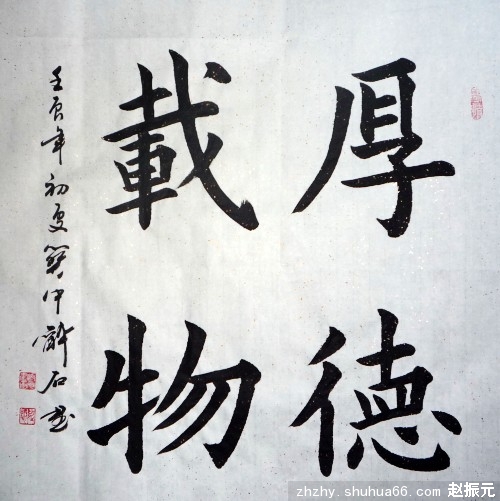 厚德
載物
壬辰年初夏關中醉石書
zhzhy.shuhua66.com 赵振元